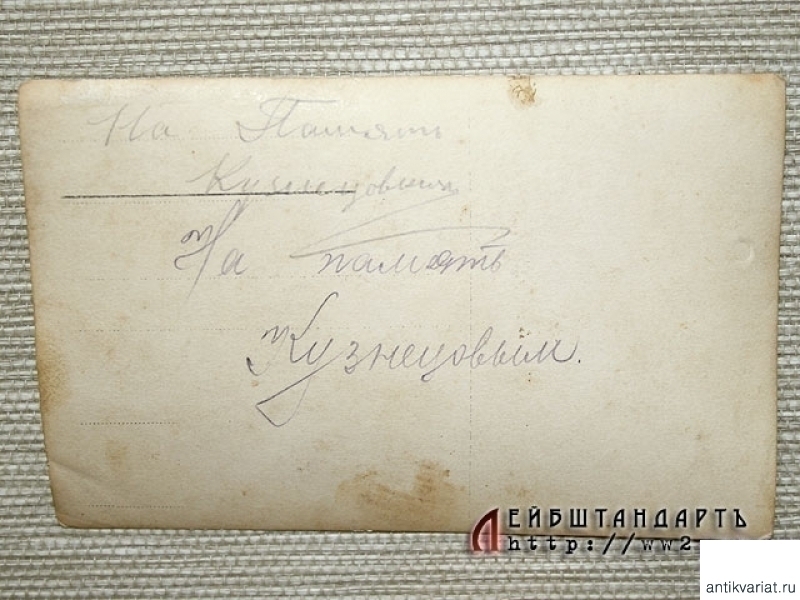 На Память
Кузнецовымъ
На память
Кузнецовым.
ЛЕЙБШТАНДАРТЪ
http://ww2
antikvariat.ru